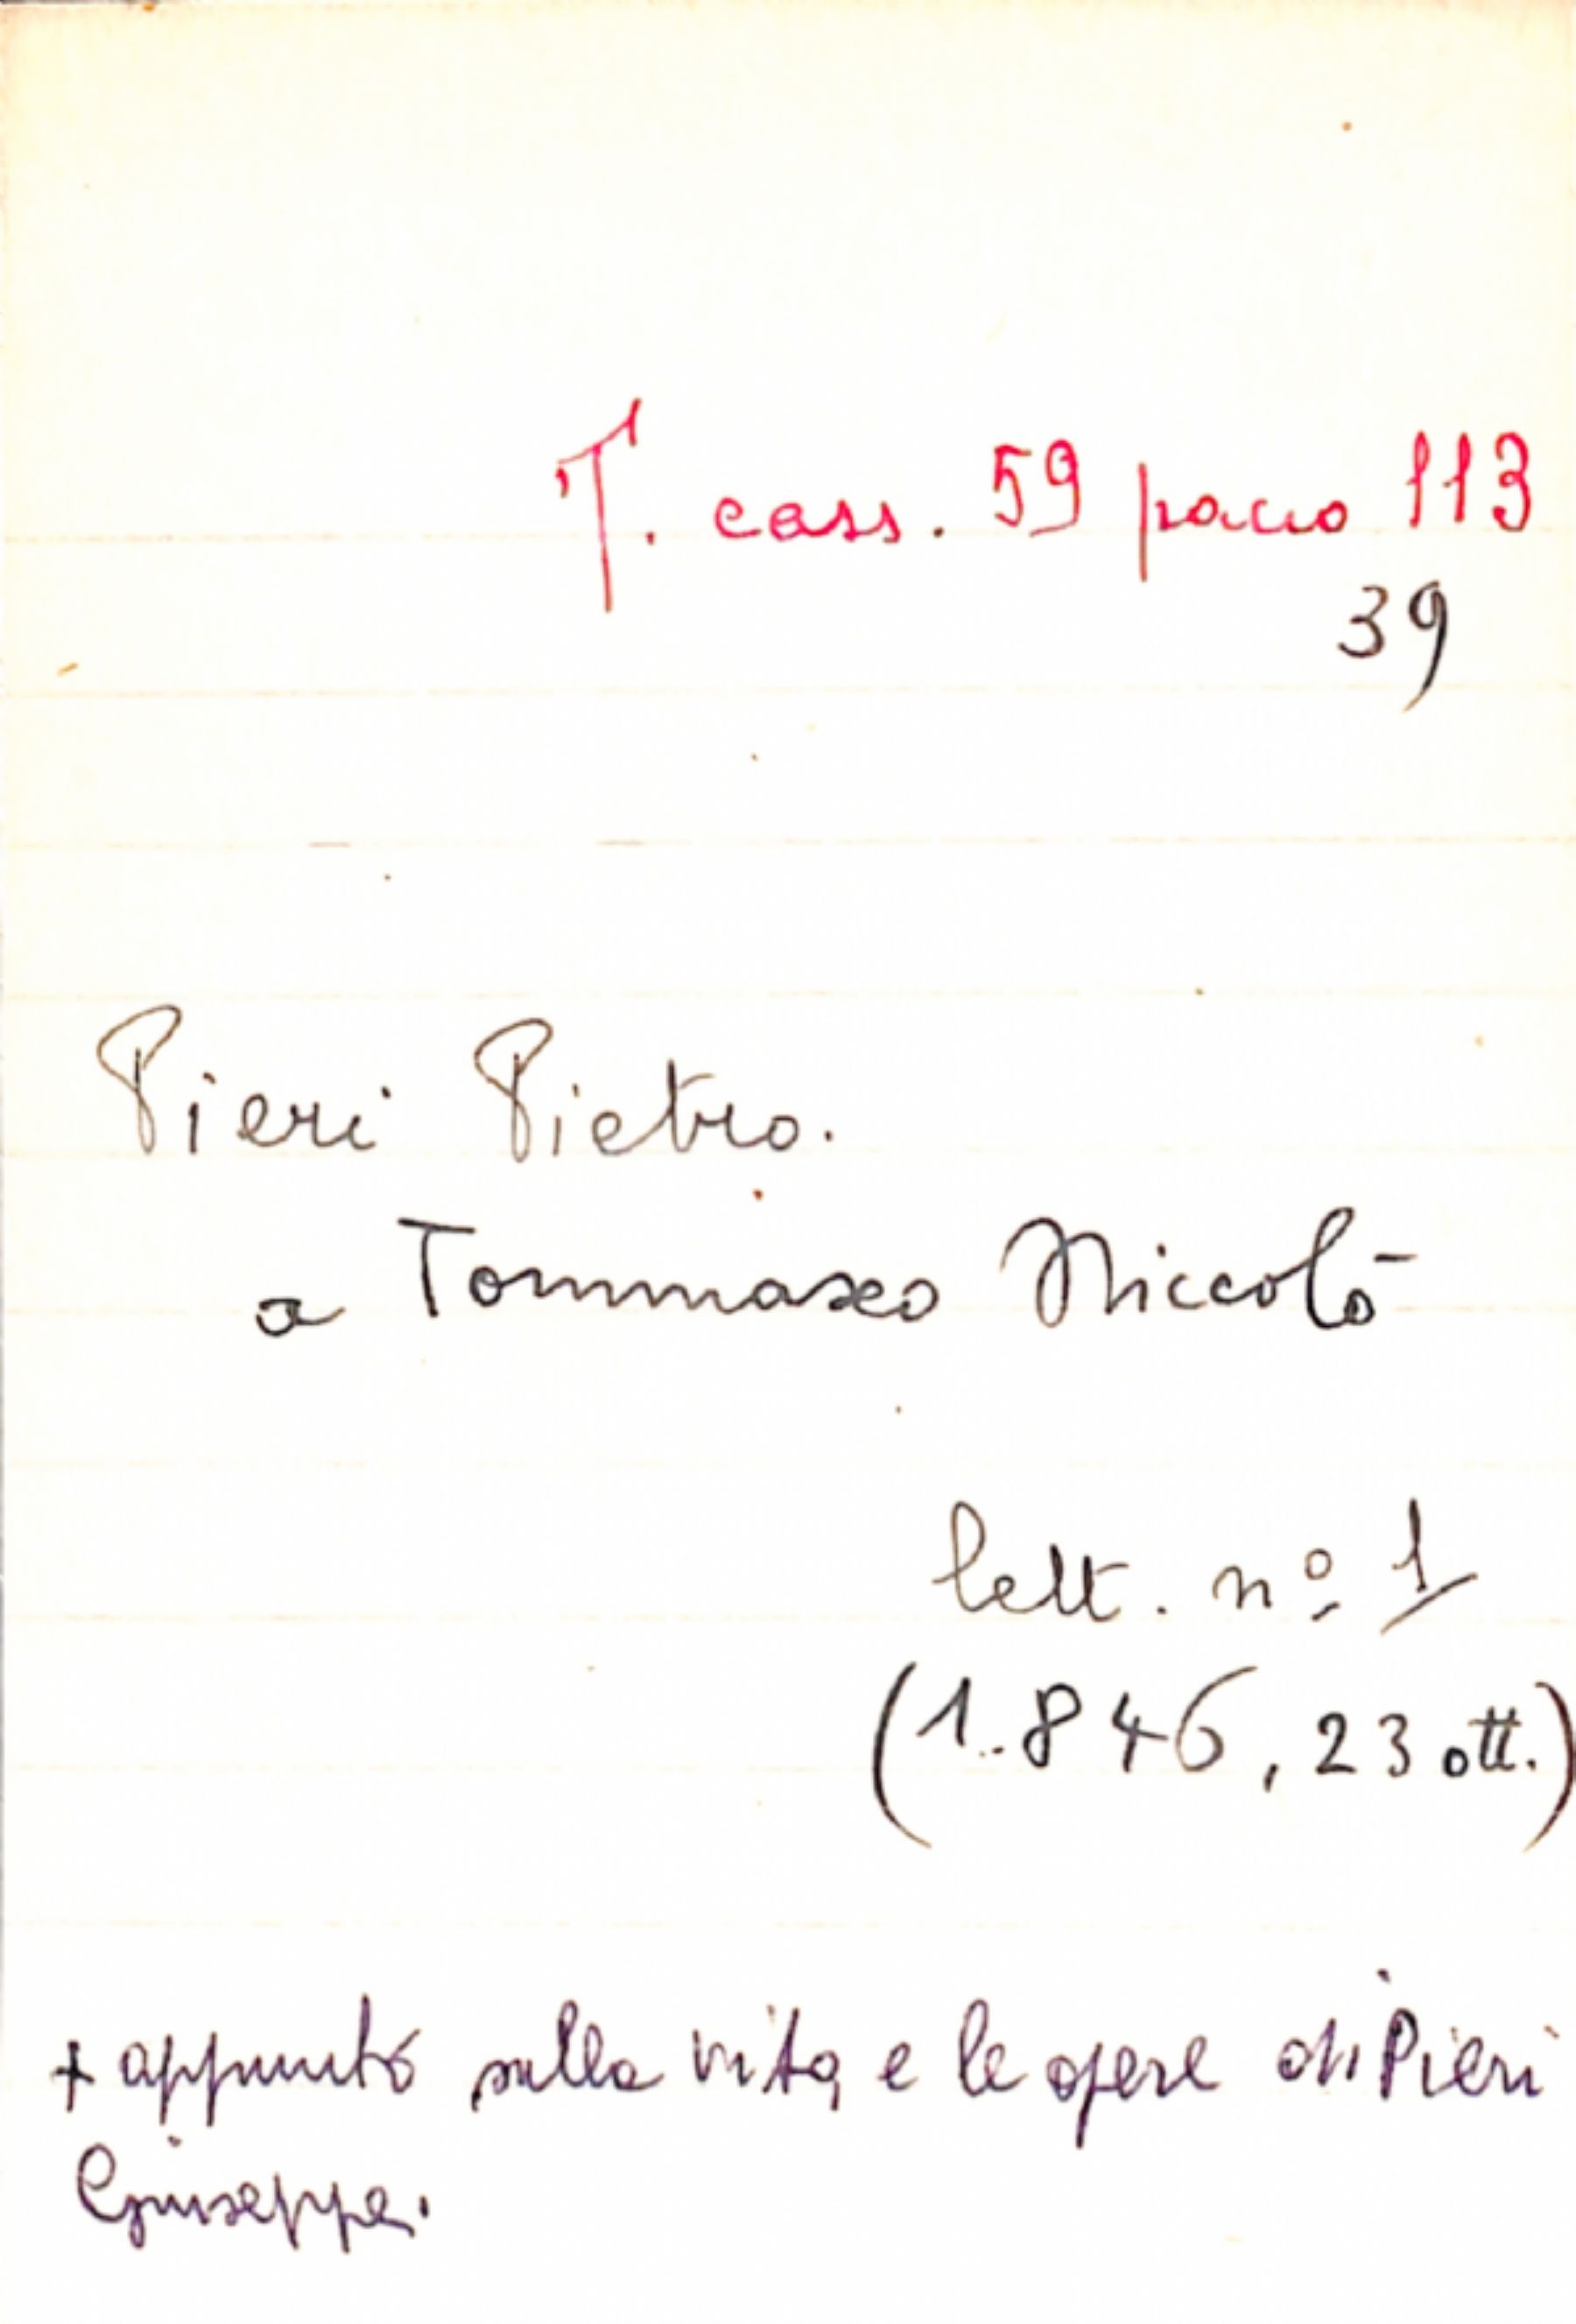 T. cass. 59 pacco 113
39
Pieri Pietro.
a Tommaseo Niccolò
lett. nº 1
(1.846, 23 ott.)
+ appunto sulla vita e le opere di Pieri
Giuseppe.